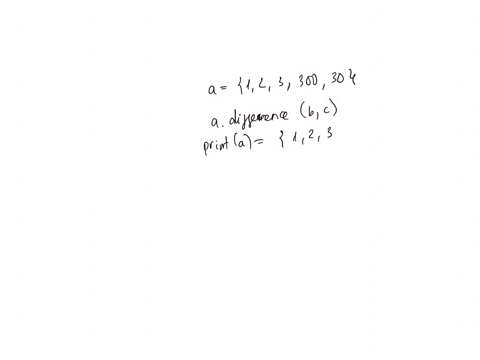 a = {1, 2, 3, 300, 30}
a. difference (b, c)
print(a) = { 1, 2, 3